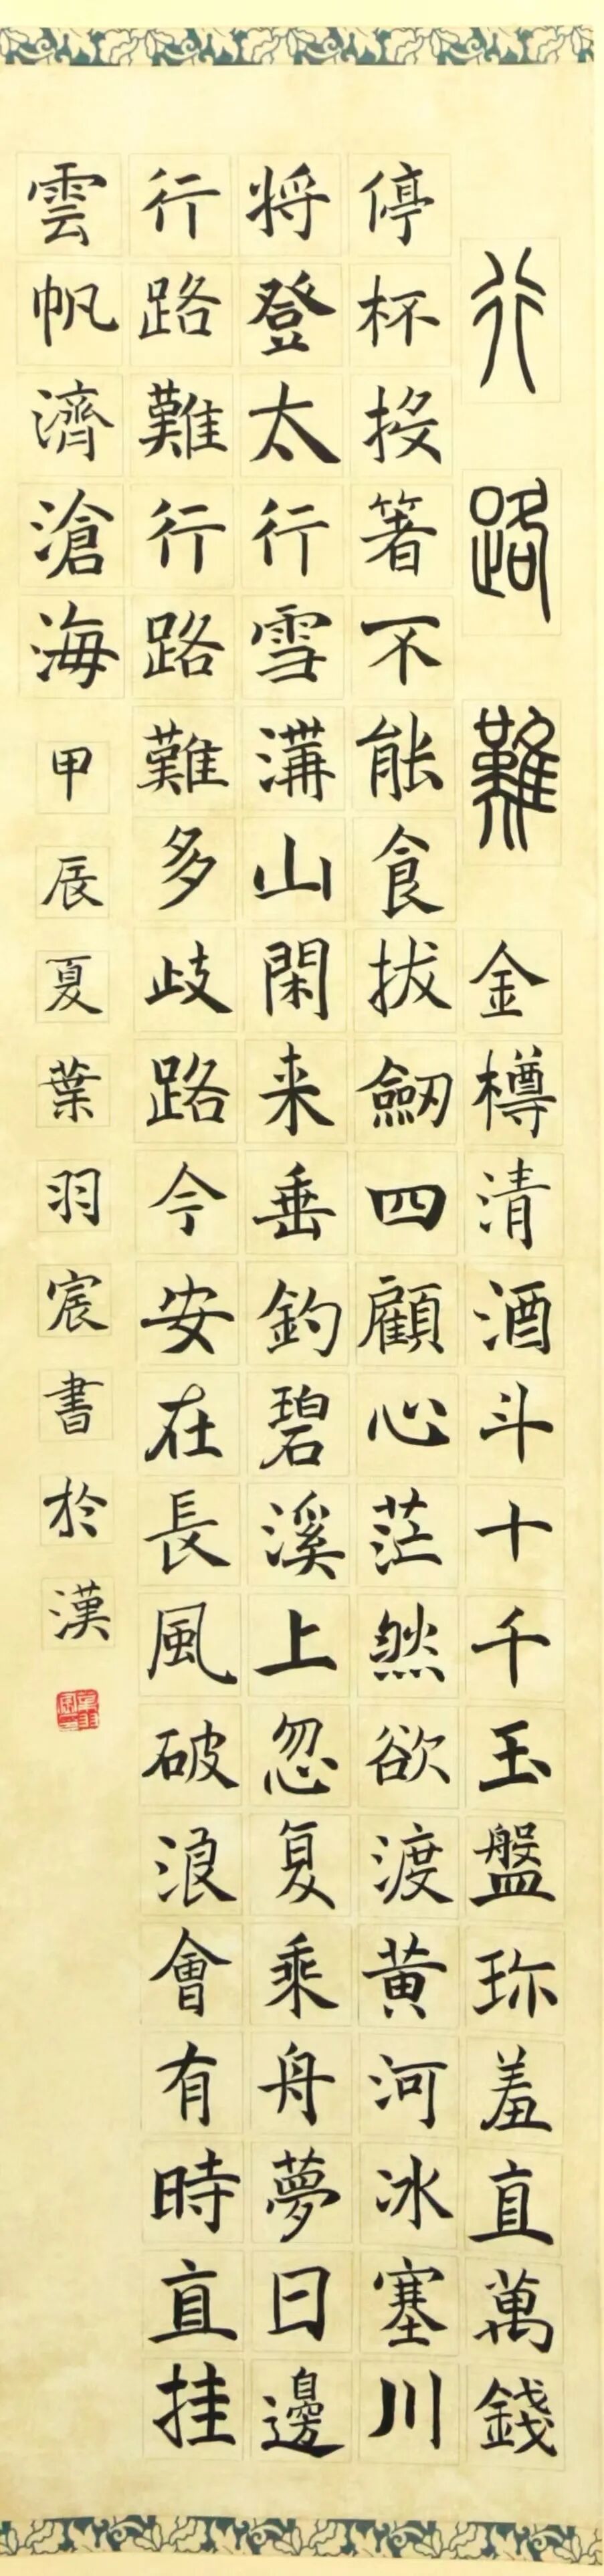 行路難 金樽清酒斗十千玉盤珎羞直萬錢
停杯投箸不能食拔劒四顧心茫然欲渡黄河冰塞川
将登太行雪滿山閑来垂釣碧溪上忽复乘舟夢日邊
行路難行路難多歧路今安在長風破浪會有時直挂
雲帆濟滄海 甲辰夏葉羽宸書於漢